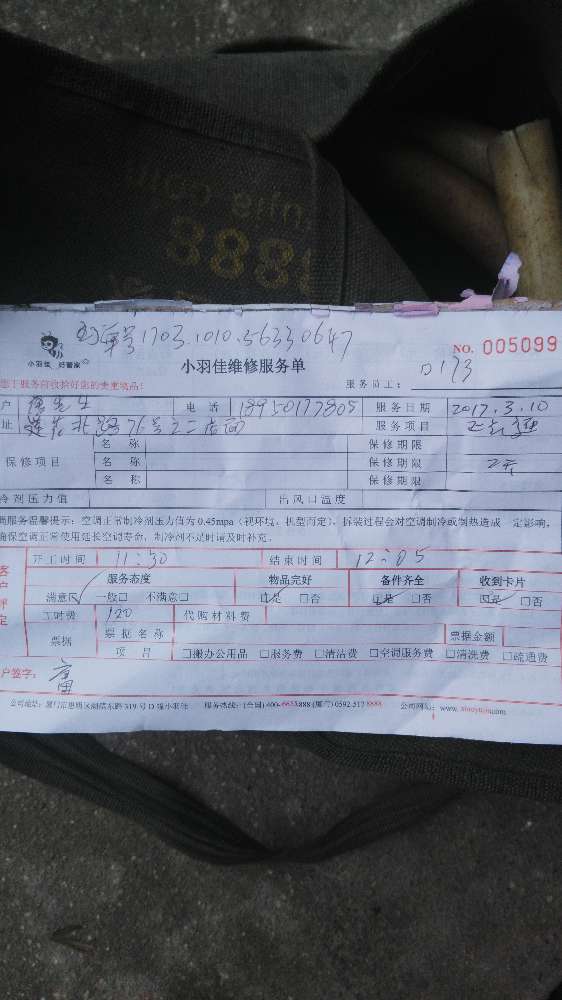 8888
订单号1703.1010.56330647
小羽佳 好管家
小羽佳维修服务单
NO. 005099
服务员工: 0173
您于服务前收拾好您的贵重物品:
户 先生 电话 18950177805 服务日期 2017.3.10
址 莲花北路76号 服务项目
保修项目
名称 保修期限
名称 保修期限
名称 保修期限
冷剂压力值 出风口温度
调服务温馨提示:空调正常制冷剂压力值为0.45mpa(视环境、机型而定)。拆装过程会对空调制冷或制热造成一定影响,
确保空调正常使用延长空调寿命,制冷剂不足时请及时补充。
客户评定
开工时间 11:30 结束时间 12:05
服务态度 物品完好 备件齐全 收到卡片
满意☑ 一般□ 不满意□ ☑是 □否 ☑是 □否 ☑是 □否
工时费 120 代购材料费
票据 票据名称 票据金额
项目 □搬办公用品 □服务费 □清洁费 □空调服务费 □清洗费 □疏通费
户签字:
公司地址:厦门市思明区湖滨东路319号D幢小羽佳 服务热线:(全国)400-6623888(厦门)0592-5178888 公司网址:www.xiaoyujia.com